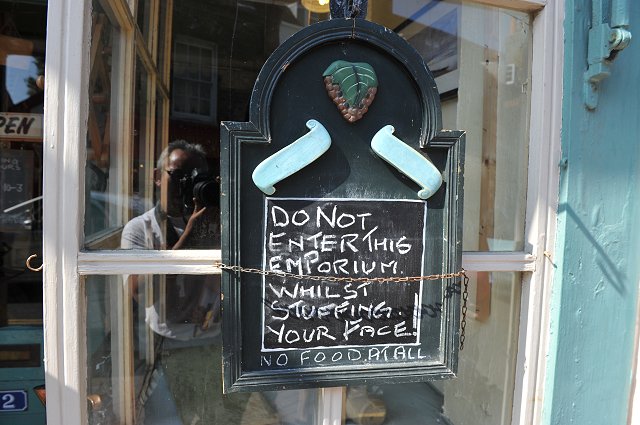 OPEN
10-3
DO NOT
ENTER THIS
EMPORIUM
WHILST
STUFFING
YOUR FACE!
NO FOOD AT ALL
2